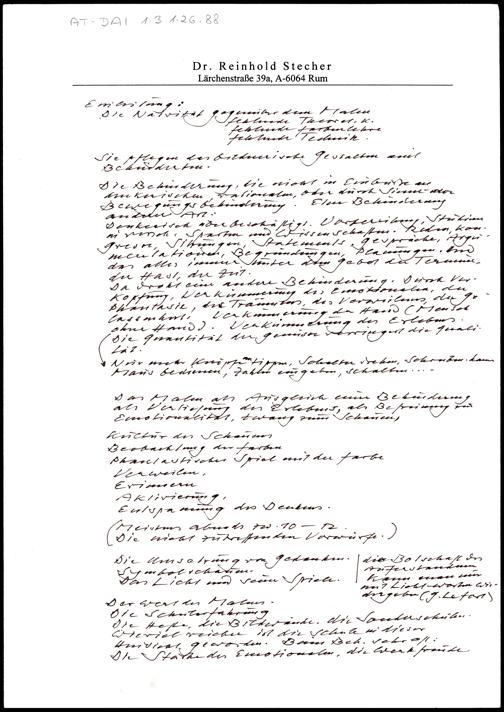 AT-DAI 1.3 1.26.88
Dr. Reinhold Stecher
Lärchenstraße 39a, A-6064 Rum
Einleitung:
Die Naivität gegenüber dem Malen
fehlende Theorie
fehlende Farbenlehre
fehlende Technik.
Sie pflegen das bildnerische Gestalten mit
Behinderten.
Die Behinderung, die nicht in Einbrüche
Bewegungsbehinderung. Eine Behinderung
anderer Art:
Vorbereitung, Studium
Sparten und Wissenschaften. Reden, Kon-
gresse, Sitzungen, Statements, Gespräche, Argu-
mentationen, Begründungen, Planungen. Und
das alles immer unter dem Gebot der Termine,
der Hast, der Zeit.
Da droht eine andere Behinderung: Durch Ver-
kopfung, Verkümmerung des Emotionalen, der
Phantasie, des Träumens, des Verweilens, der Ge-
lassenheit. Verkümmerung der Hand (Mensch
ohne Hand). Verkümmerung des Erlebens.
(Die Quantität der Genüsse verringert die Quali-
tät.
Nur mehr Knöpfe tippen, Schalter drehen,
Maus bedienen, Zahlen eingeben, schalten ....
Das Malen als Ausgleich einer Behinderung
als Vertiefung des Erlebens, als Befreiung zur
Emotionalität, Zwang zum Schauen,
Kultur des Schauens
Beobachtung der Farben
Phantastisches Spiel mit der Farbe
Verweilen,
Erinnern
Aktivierung,
Entspannung des Denkens.
(Meistens abends so 10 – 12.
(Die nicht zutreffenden Vorwürfe.)
Die Umsetzung von Gedanken.
Symbolschauen.
Das Licht und seine Spiele.
die Botschaft des
Auferstandenen
kann man nur
mit Licht-worten wie-
dergeben (G. Lefort)
Der Wert des Malens.
Die Schulerfahrung
Die Hefte, die Bildwände, die Sonderschulen.
Wieviel reicher ist die Schule in dieser
Hinsicht geworden.
Die Stärke des Emotionalen, die Werkfreude